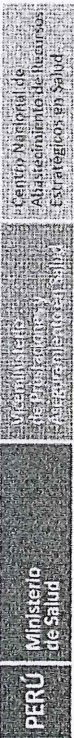 PERÚ
Ministerio
de Salud
Viceministerio
de Prestaciones y
Aseguramiento en Salud
Centro Nacional de
Abastecimiento de Recursos
Estratégicos en Salud